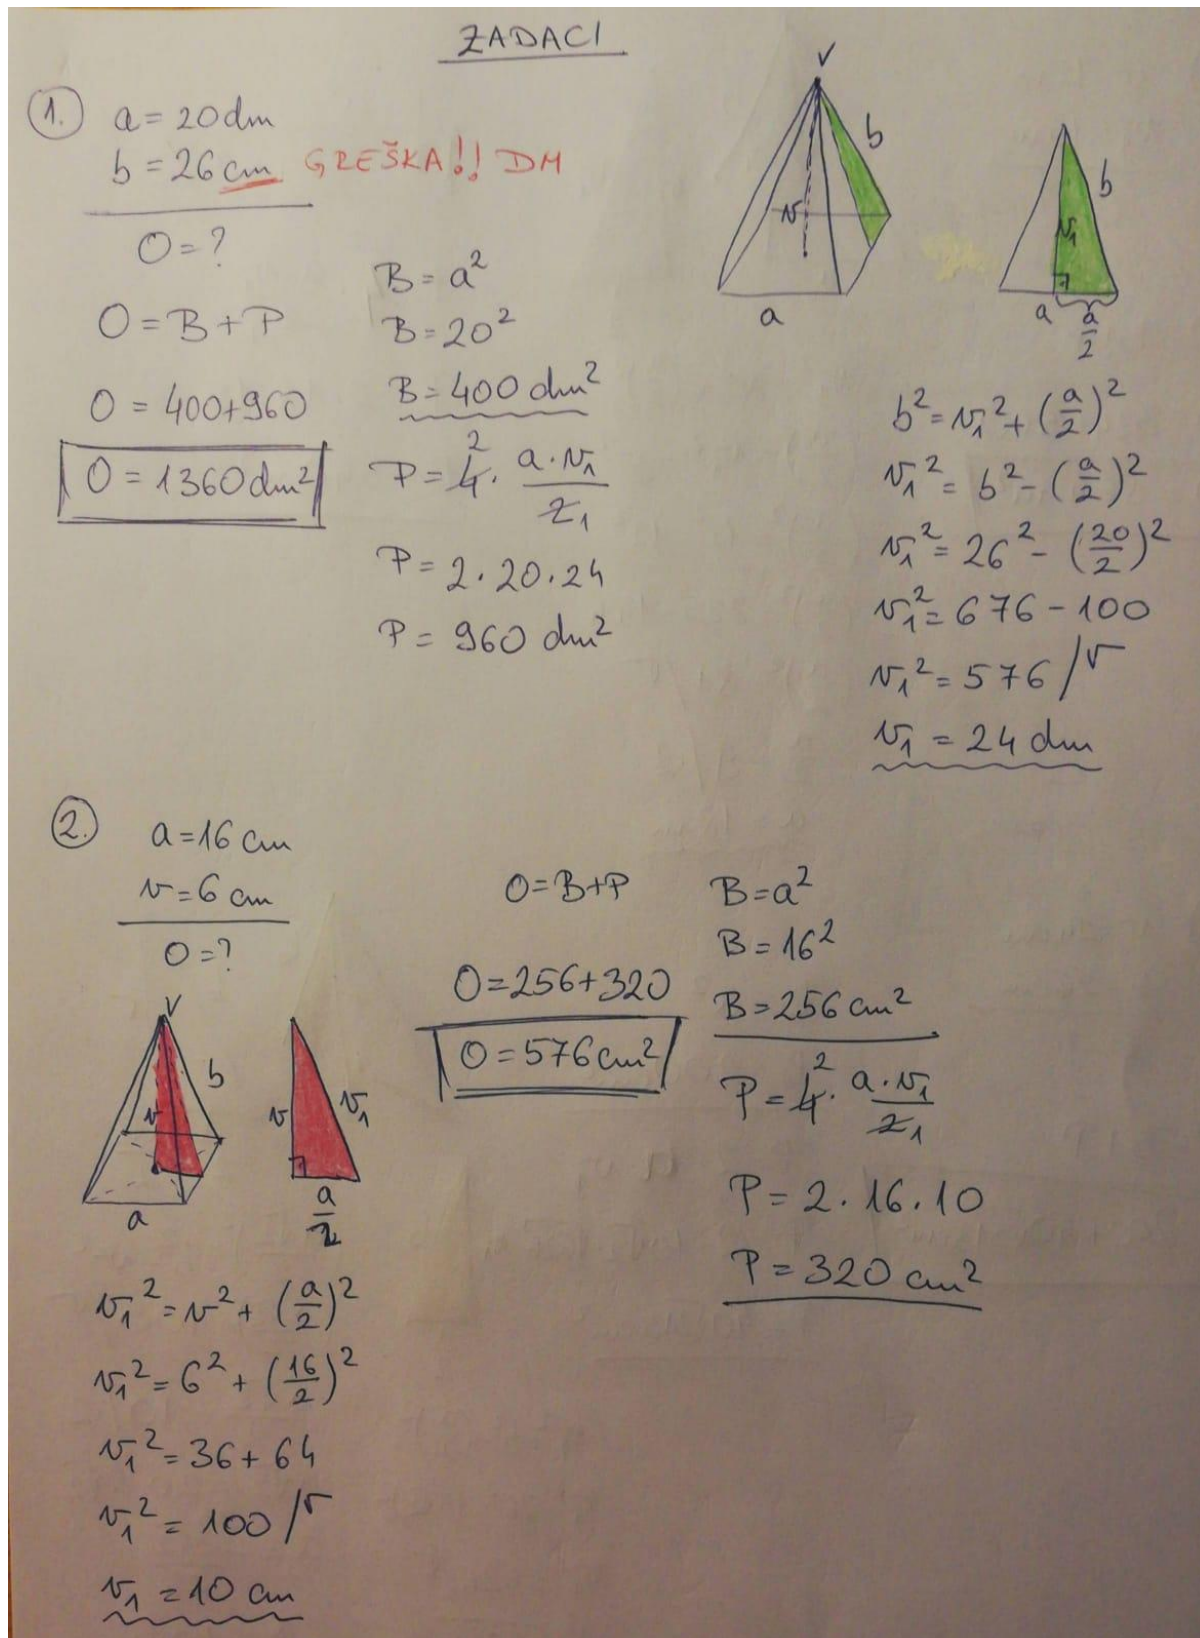 ZADACI
1. a = 20 dm
b = 26 cm GREŠKA!! DM
O = ?
O = B + P
O = 400+960
O = 1360 dm²
B = a²
B = 20²
B = 400 dm²
P = 4² · a·v₁/2₁
P = 2 · 20 · 24
P = 960 dm²
V
b
v
a
b
v₁
a
a/2
b² = v₁² + (a/2)²
v₁² = b² - (a/2)²
v₁² = 26² - (20/2)²
v₁² = 676 - 100
v₁² = 576 /√
v₁ = 24 dm
2. a = 16 cm
v = 6 cm
O = ?
V
b
v
a
v
v₁
a/2
v₁² = v² + (a/2)²
v₁² = 6² + (16/2)²
v₁² = 36 + 64
v₁² = 100 /√
v₁ = 10 cm
O = B+P
O = 256+320
O = 576 cm²
B = a²
B = 16²
B = 256 cm²
P = 4² · a·v₁/2₁
P = 2 · 16 · 10
P = 320 cm²